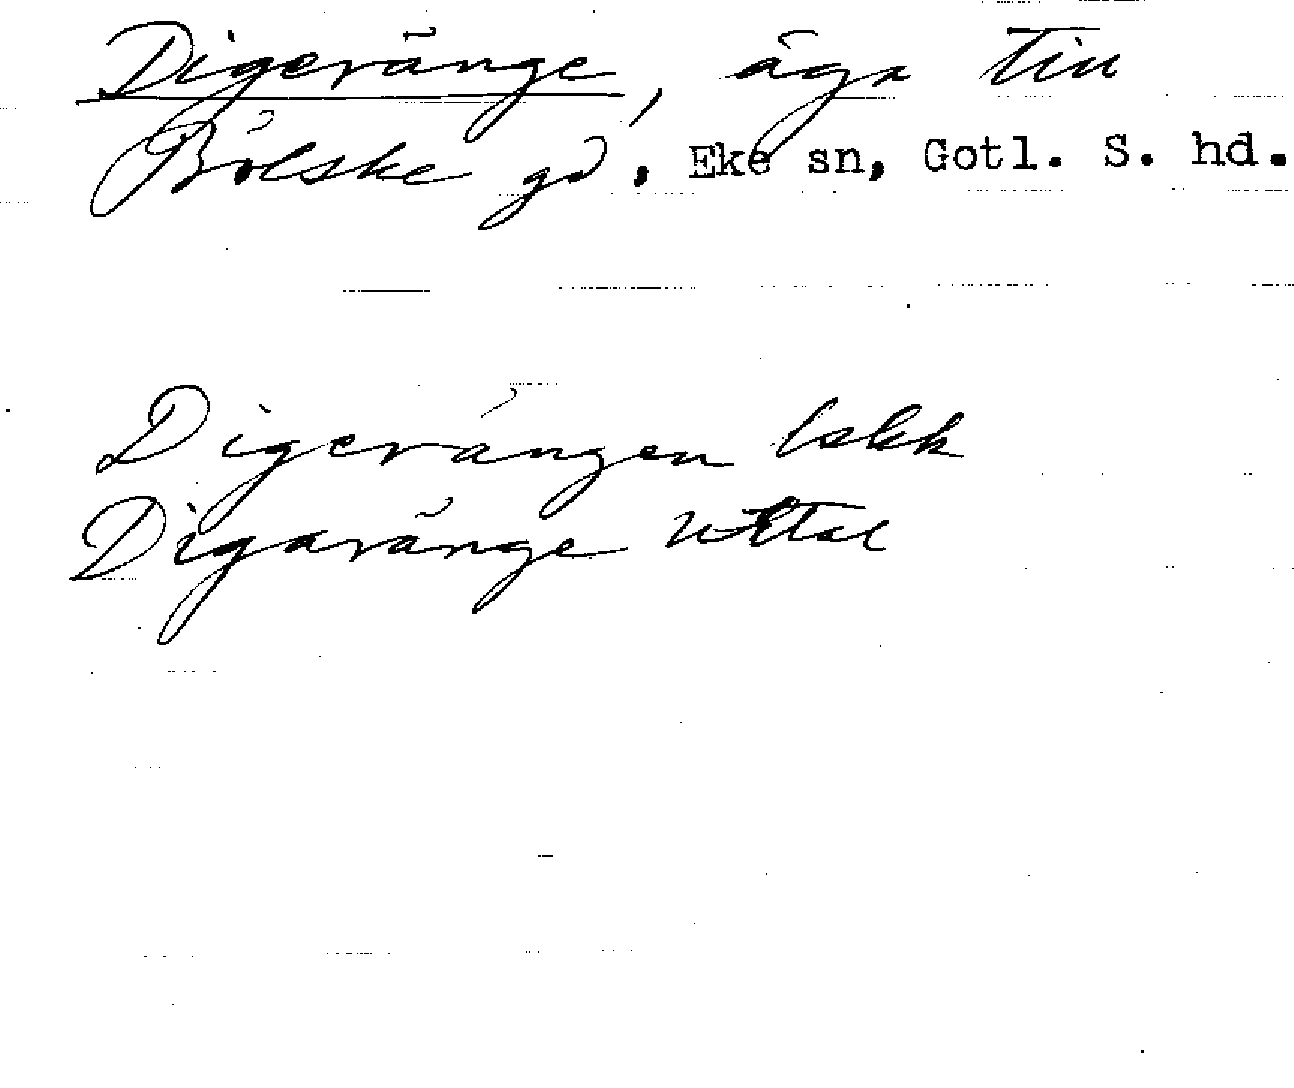 Digeränge, äga till
Bölske gd, Eke sn, Gotl. S. hd.
Digerängen lskk
Digaränge uttal